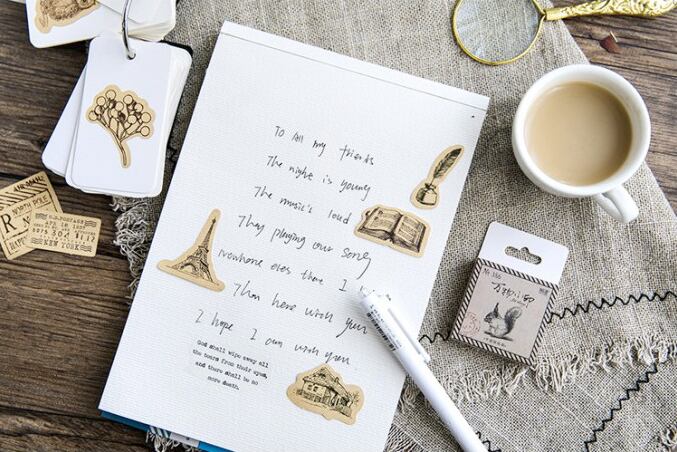 To All my friends
The night is young
The music's loud
They playing our song
Nowhere oves there I
Than here with you
I hope I am with you
God shall wipe away all
the tears from their eyes,
and there shall be no
more death.
NORTH POLE
U.S. POSTAGE
NEW YORK
№ 166